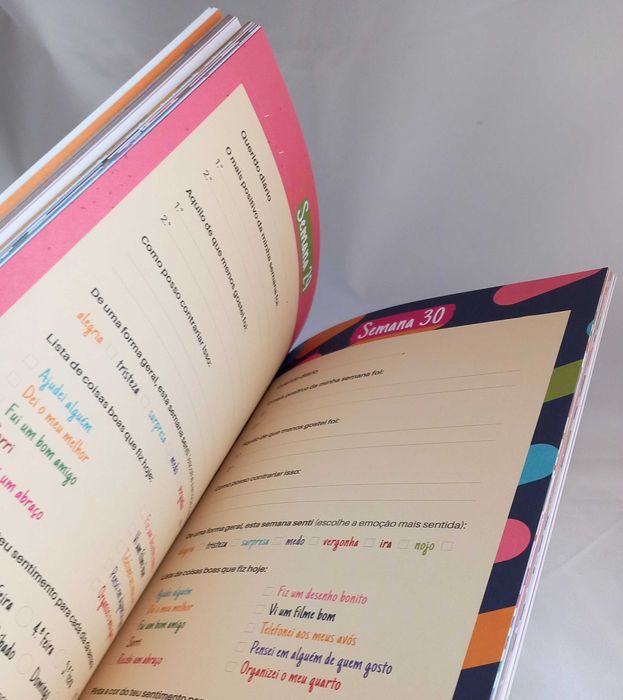 Semana 29
Querido diário
O mais positivo da minha semana foi:
1.º
2.º
Aquilo de que menos gostei foi:
1.º
2.º
Como posso contrariar isso:
De uma forma geral, esta semana senti
alegria tristeza surpresa medo
Lista de coisas boas que fiz hoje:
Ajudei alguém
Dei o meu melhor
Fui um bom amigo
um abraço
teu sentimento para cada dia da
4.ª feira
Semana 30
Querido diário
mais positivo da minha semana foi:
Aquilo de que menos gostei foi:
Como posso contrariar isso:
De uma forma geral, esta semana senti (escolhe a emoção mais sentida):
alegria tristeza surpresa medo vergonha ira nojo
Lista de coisas boas que fiz hoje:
Ajudei alguém
Dei o meu melhor
Fui um bom amigo
Sorri
Recebi um abraço
Fiz um desenho bonito
Vi um filme bom
Telefonei aos meus avós
Pensei em alguém de quem gosto
Organizei o meu quarto
Pinta a cor do teu sentimento